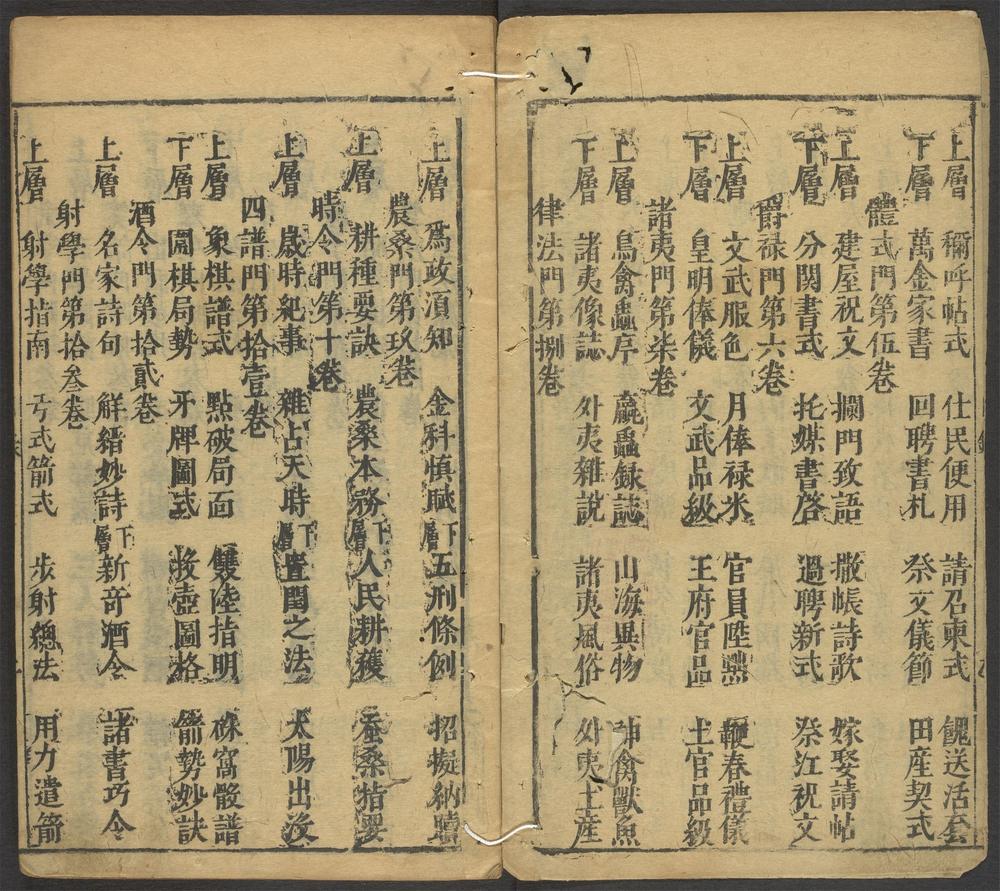 上層 稱呼帖式 仕民便用 請召柬式 餽送活套
下層 萬金家書 回聘書札 祭文儀節 田産契式
體式門第伍卷
上層 建屋祝文 攔門致語 撒帳詩歌 嫁娶請帖
下層 分関書式 托媒書啓 過聘新式 祭江祝文
爵禄門第六卷
上層 文武服色 月俸禄米 官員陞 鞭春禮儀
下層 皇明俸儀 文武品級 王府官品 土官品級
諸夷門第柒卷
上層 鳥禽蟲序 蠃蟲録誌 山海異物 神禽獸魚
下層 諸夷像誌 外夷雜說 諸夷風俗 外夷土産
律法門第捌卷
上層 爲政湏知 金科慎賦 下層 五刑條例 招擬納贖
農桑門第玖卷
上層 耕種要訣 農桑本務 下層 人民耕穫 蚕桑指要
時令門第十卷
上層 歲時紀事 雜占天時 下層 置閏之法 太陽出没
四譜門第拾壹卷
上層 象棋譜式 點破局面 雙陸指明 硃窩骰譜
下層 圍棋局勢 牙牌圖式 投壺圖格 箭勢妙訣
酒令門第拾貳卷
上層 名家詩句 觧縉妙詩 下層 新竒酒令 諸書巧令
射學門第拾叁卷
上層 射學指南 弓式箭式 步射總法 用力遣箭